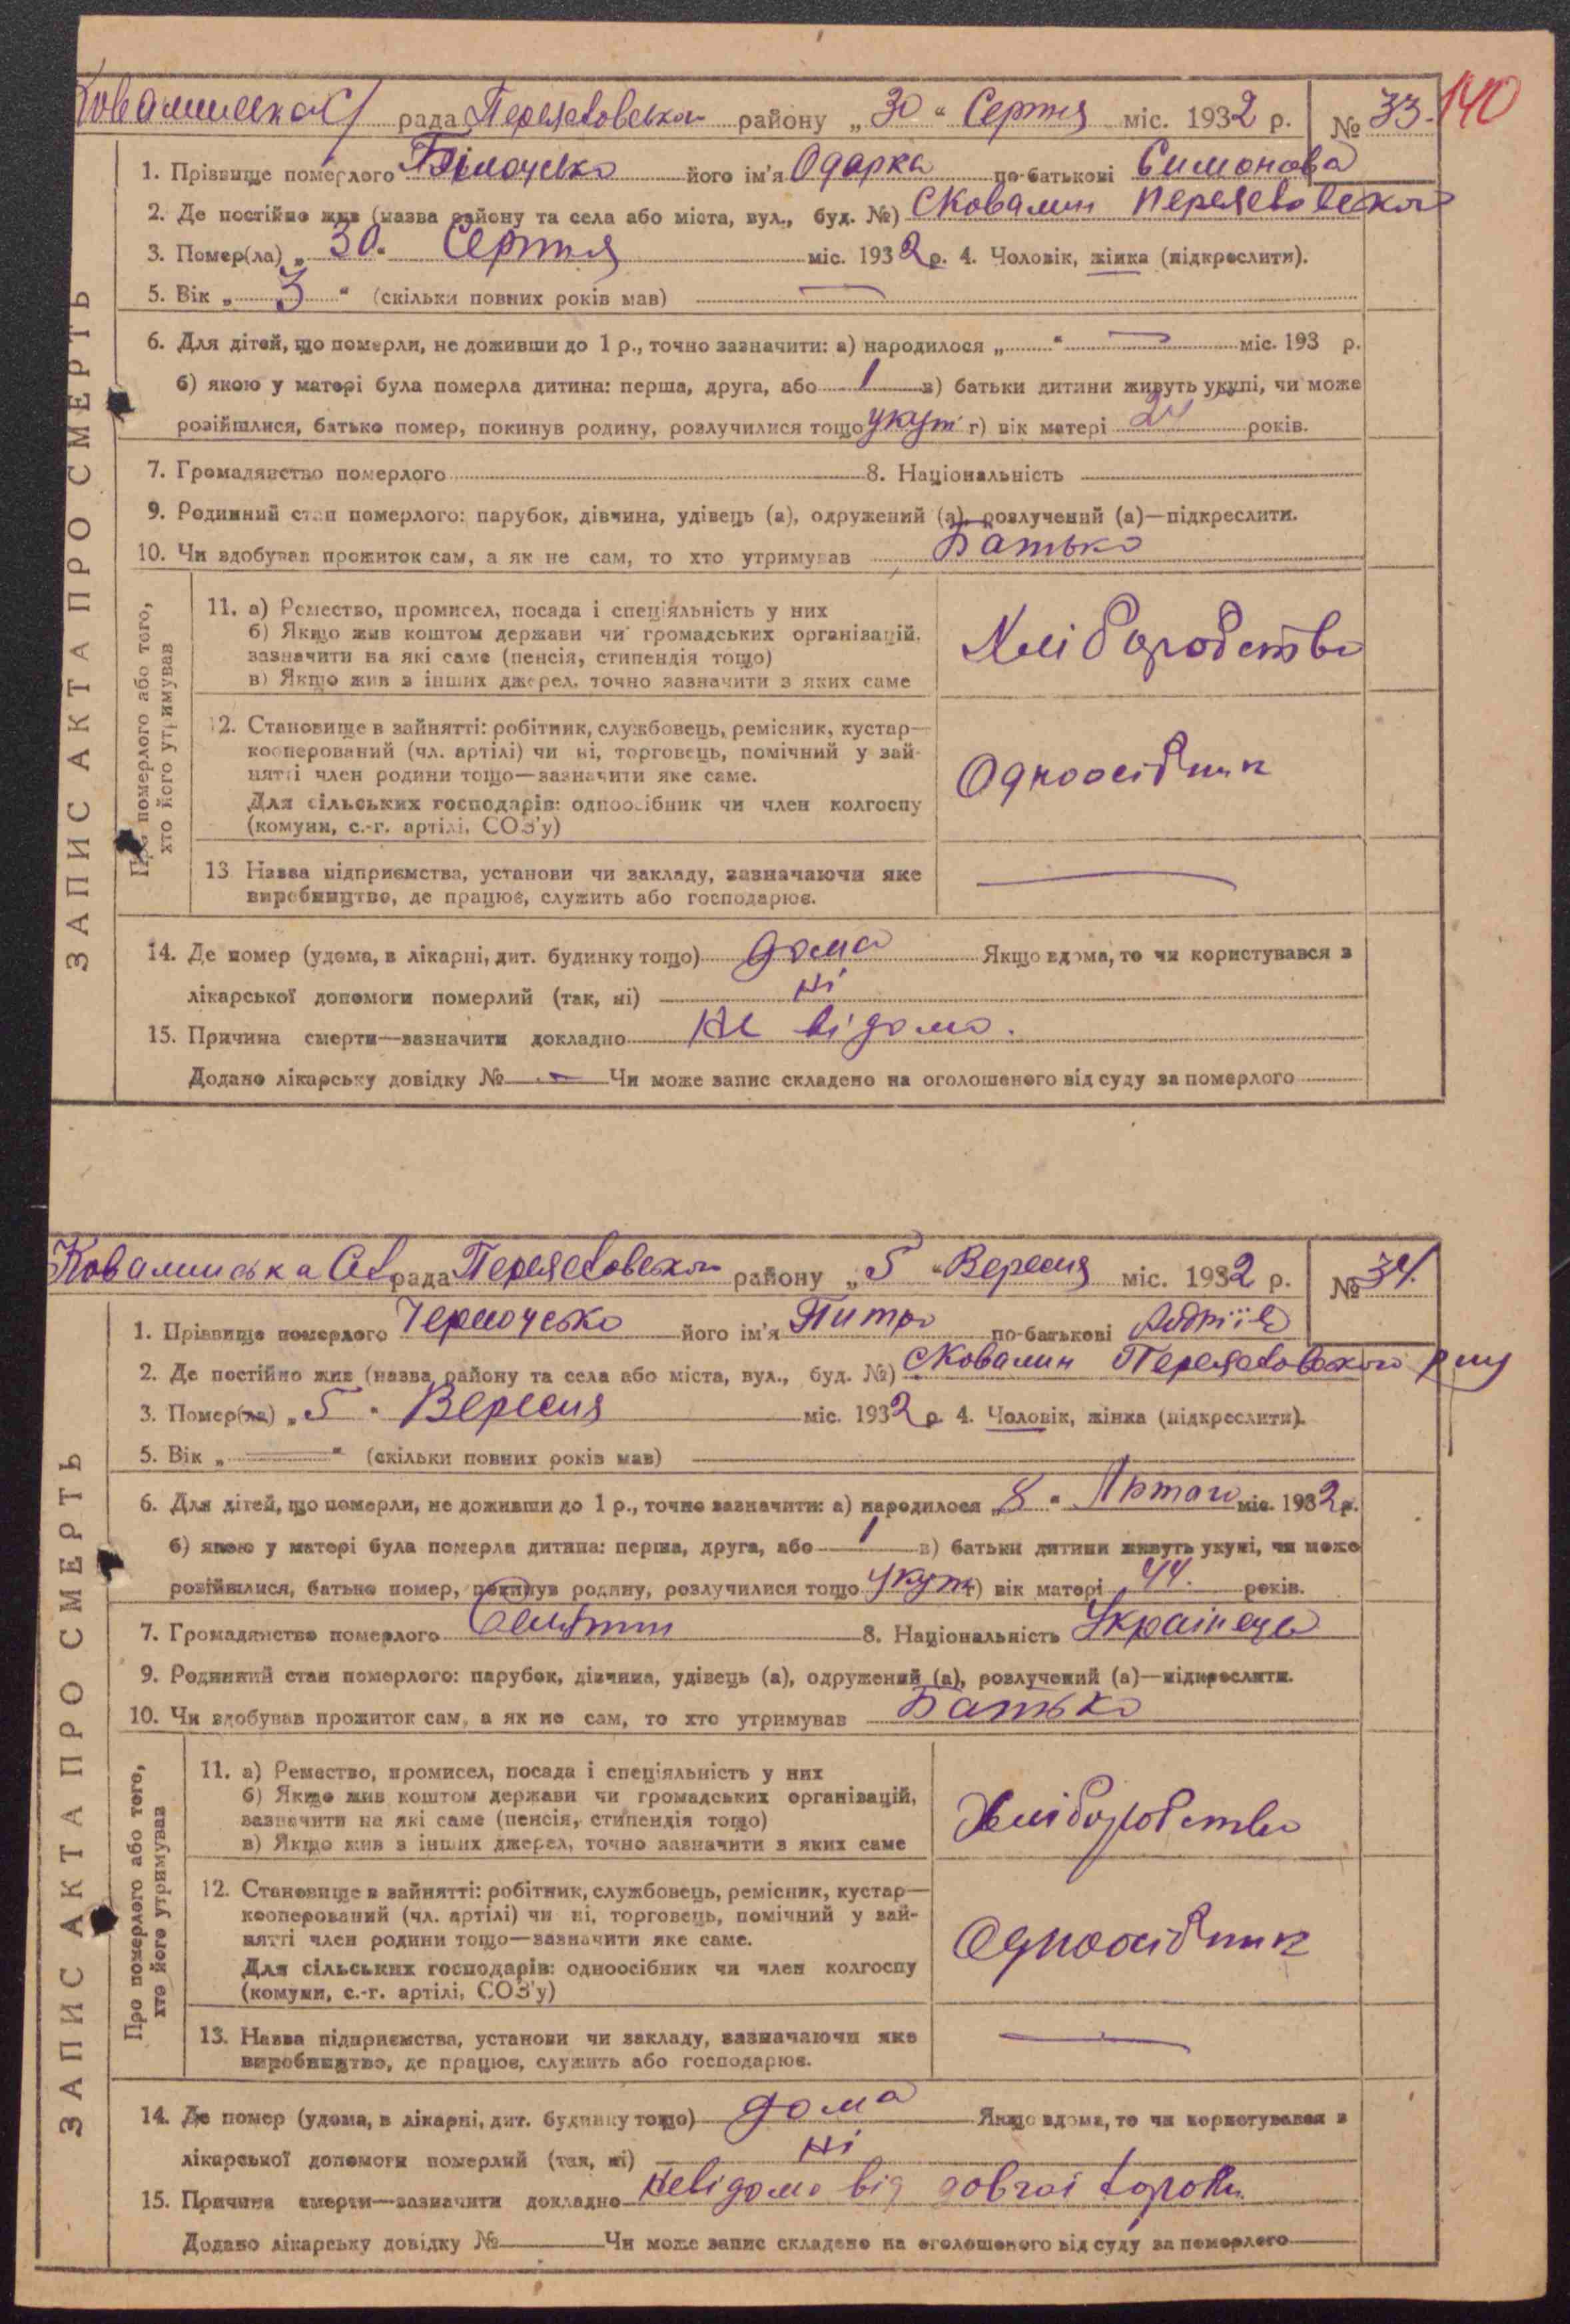 Ковалинська С/ рада Переяславська району „30“ Серпня міс. 1932 р. № 33. 140
1. Прізвище померлого його ім'я Одарка по-батькові Симонова
2. Де постійно жив (назва району та села або міста, вул., буд. №) с Ковалин
3. Помер(ла) „30“ Серпня міс. 1932 р. 4. Чоловік, жінка (підкреслити).
5. Вік „3“ (скільки повних років мав) —
6. Для дітей, що померли, не доживши до 1 р., точно зазначити: а) народилося „ “ — міс. 193 р.
б) якою у матері була померла дитина: перша, друга, або 1 в) батьки дитини живуть укупі, чи може
розійшлися, батько помер, покинув родину, розлучилися тощо укупі г) вік матері 24 років.
7. Громадянство померлого 8. Національність
9. Родинний стан померлого: парубок, дівчина, удівець (а), одружений (а), розлучений (а)—підкреслити.
10. Чи здобував прожиток сам, а як не сам, то хто утримував Батько
ЗАПИС АКТА ПРО СМЕРТЬ
Про померлого або того,
хто його утримував
11. а) Ремество, промисел, посада і спеціяльність у них
б) Якщо жив коштом держави чи громадських організацій,
зазначити на які саме (пенсія, стипендія тощо)
в) Якщо жив з інших джерел, точно зазначити з яких саме
Хліборобство
12. Становище в зайнятті: робітник, службовець, ремісник, кустар—
кооперований (чл. артілі) чи ні, торговець, помічний у зай-
нятті член родини тощо—зазначити яке саме.
Для сільських господарів: одноосібник чи член колгоспу
(комуни, с.-г. артілі, СОЗ'у)
Одноосібник
13 Назва підприємства, установи чи закладу, зазначаючи яке
виробництво, де працює, служить або господарює.
—
14. Де помер (удома, в лікарні, дит. будинку тощо) дома Якщо вдома, то чи користувався з
лікарської допомоги померлий (так, ні) ні
15. Причина смерти—зазначити докладно не відомо.
Додано лікарську довідку № — Чи може запис складено на оголошеного від суду за померлого
Ковалинська рада Переяславська району „5“ Вересня міс. 1932 р. № 34.
1. Прізвище померлого його ім'я Питро по-батькові
2. Де постійно жив (назва району та села або міста, вул., буд. №) с Ковалин Переяславського р ну
3. Помер(ла) „5“ Вересня міс. 1932 р. 4. Чоловік, жінка (підкреслити).
5. Вік „—“ (скільки повних років мав)
6. Для дітей, що померли, не доживши до 1 р., точно зазначити: а) народилося „8“ Лютого міс. 1932 р.
б) якою у матері була померла дитина: перша, друга, або 1 в) батьки дитини живуть укупі, чи може
розійшлися, батько помер, покинув родину, розлучилися тощо укупі г) вік матері 44. років.
7. Громадянство померлого 8. Національність Українець
9. Родинний стан померлого: парубок, дівчина, удівець (а), одружений (а), розлучений (а)—підкреслити.
10. Чи здобував прожиток сам, а як не сам, то хто утримував Батько
ЗАПИС АКТА ПРО СМЕРТЬ
Про померлого або того,
хто його утримував
11. а) Ремество, промисел, посада і спеціяльність у них
б) Якщо жив коштом держави чи громадських організацій,
зазначити на які саме (пенсія, стипендія тощо)
в) Якщо жив з інших джерел, точно зазначити з яких саме
Хліборобство
12. Становище в зайнятті: робітник, службовець, ремісник, кустар—
кооперований (чл. артілі) чи ні, торговець, помічний у зай-
нятті член родини тощо—зазначити яке саме.
Для сільських господарів: одноосібник чи член колгоспу
(комуни, с.-г. артілі, СОЗ'у)
Одноосібник
13. Назва підприємства, установи чи закладу, зазначаючи яке
виробництво, де працює, служить або господарює.
—
14. Де помер (удома, в лікарні, дит. будинку тощо) дома Якщо вдома, то чи користувався з
лікарської допомоги померлий (так, ні) ні
15. Причина смерти—зазначити докладно невідомо від
Додано лікарську довідку № Чи може запис складено на оголошеного від суду за померлого